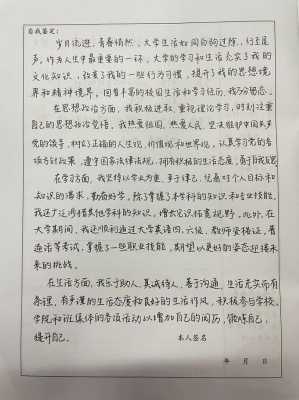 自我鉴定:
岁月流逝,青春悄然,大学生活如白驹过隙,行至尾
声。作为人生中最重要的一环,大学的学习和生活充实了我的
文化知识,改变了我的一些行为习惯,提升了我的思想境
界和精神境界。回首丰富的校园生活和学习经历,我万分感慨。
在思想政治方面,我积极进取,重视理论学习,时刻注重
自己的思想政治觉悟。我热爱祖国,热爱人民,坚决拥护中国共产
党的领导,树立了正确的人生观,价值观和世界观,认真学习党的各
项方针政策,遵守国家法律法规,拥有积极的生活态度,善于自我反思
在学习方面,我坚持以学业为重,严于律己,凭着对个人目标和
知识的渴求,勤奋好学,除了掌握了本学科的知识和专业技能,
我还广泛涉猎其他学科的知识,增长见识拓宽视野。此外,在
大学期间,我还顺利通过大学英语四、六级、教师资格证,普
通话等考试,掌握了一些职业技能,期望以更好的姿态迎接未
来的挑战。
在生活方面,我乐于助人,真诚待人,善于沟通。生活充实而有
条理,有严谨的生活态度和良好的生活作风,积极参与学校、
学院和班集体的各项活动以增加自己的阅历,锻炼自己,
提升自己。
本人签名
年 月 日